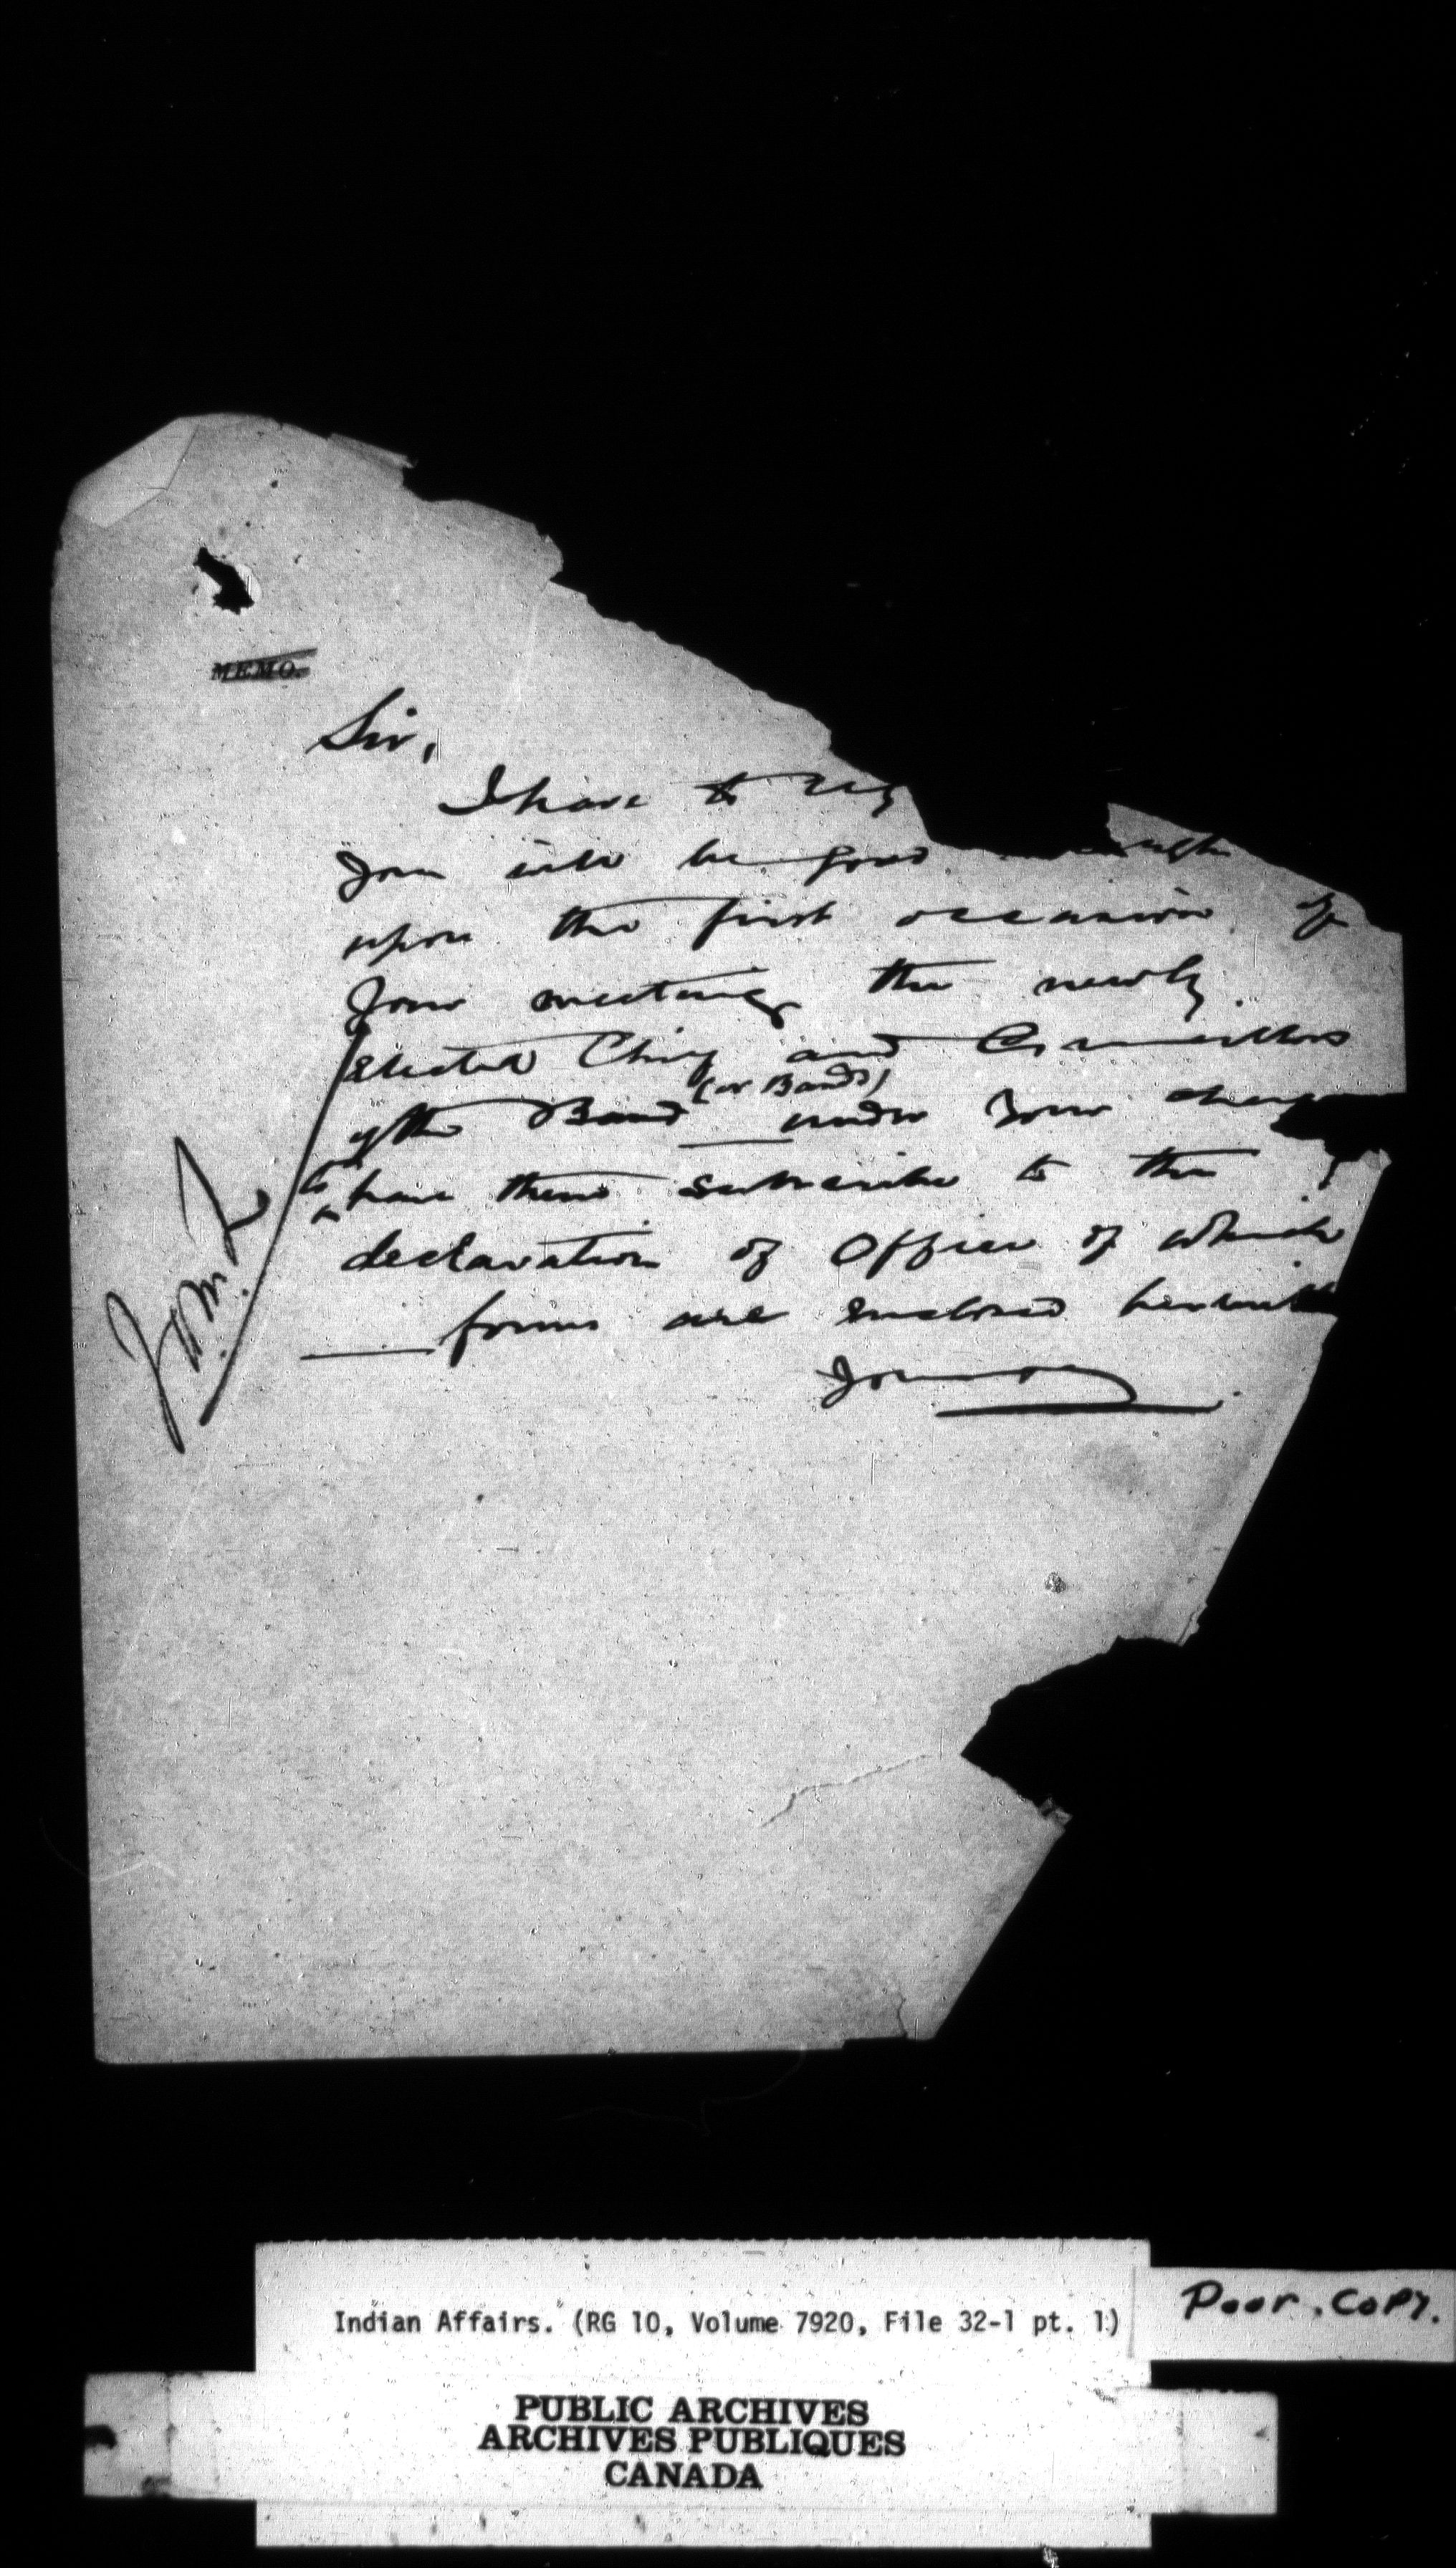 MEMO.
Sir,
I have to req
you will be good enough
upon the first occasion of
your meeting the newly
elected Chief and Councillors
(or Bands)
of the Band ___ under your charge
to have them subscribe to the
declaration of Office of which
___ forms are enclosed herewith
Your
Indian Affairs. (RG 10, Volume 7920, File 32-1 pt. 1)
Poor. Copy.
PUBLIC ARCHIVES
ARCHIVES PUBLIQUES
CANADA